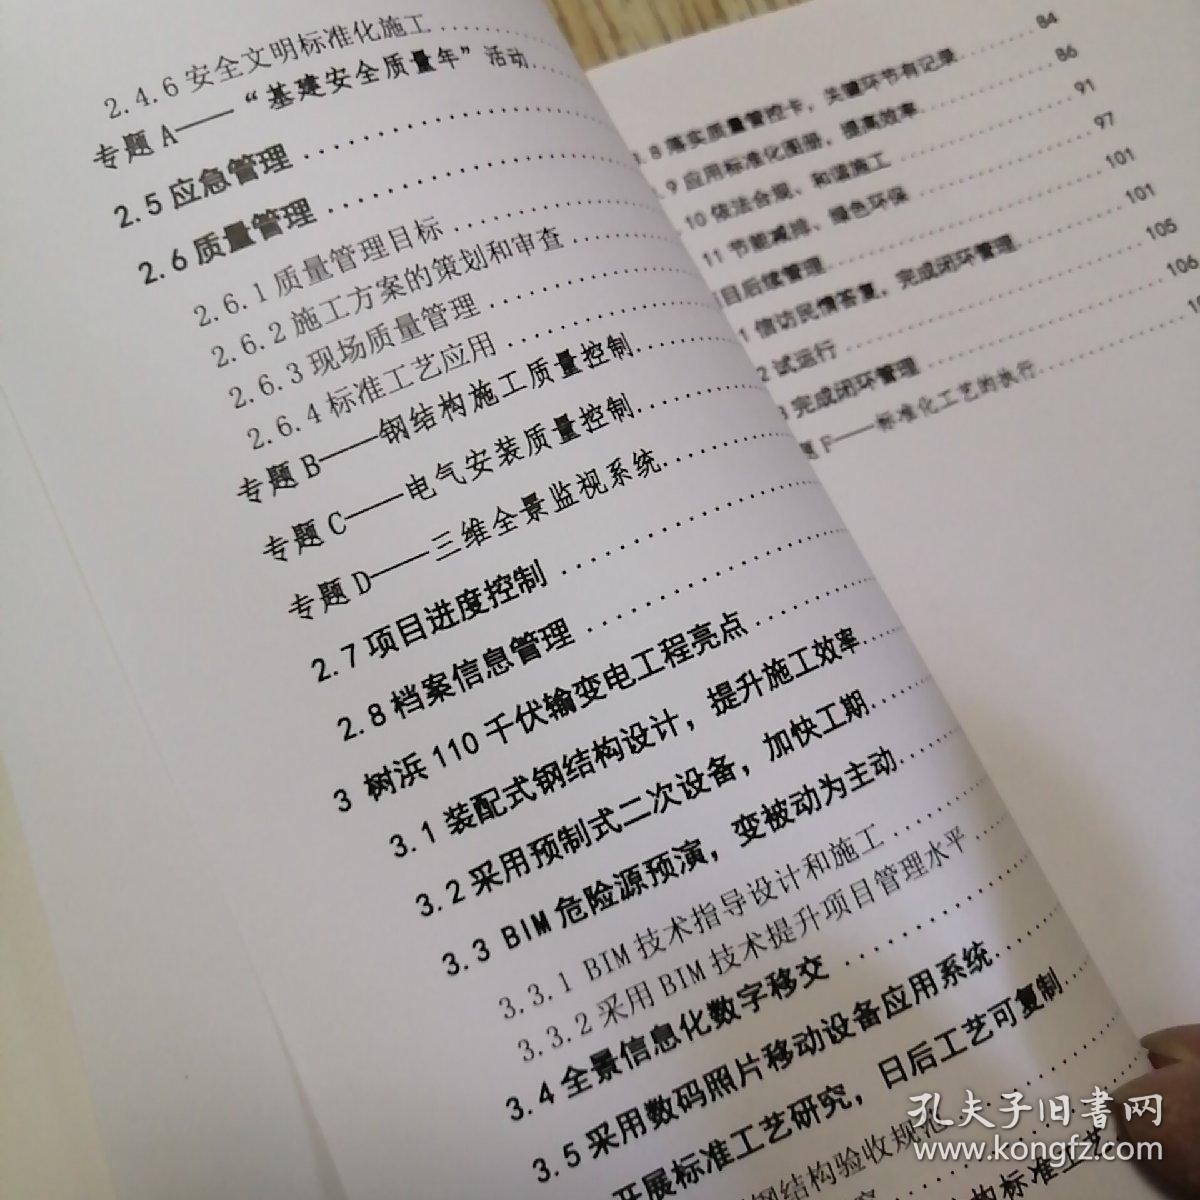 2.4.6 安全文明标准化施工
专题 A——“基建安全质量年”活动
2.5 应急管理
2.6 质量管理
2.6.1 质量管理目标
2.6.2 施工方案的策划和审查
2.6.3 现场质量管理
2.6.4 标准工艺应用
专题 B——钢结构施工质量控制
专题 C——电气安装质量控制
专题 D——三维全景监视系统
2.7 项目进度控制
2.8 档案信息管理
3 树浜 110 千伏输变电工程亮点
3.1 装配式钢结构设计，提升施工效率
3.2 采用预制式二次设备，加快工期
3.3 BIM 危险源预演，变被动为主动
3.3.1 BIM 技术指导设计和施工
3.3.2 采用 BIM 技术提升项目管理水平
3.4 全景信息化数字移交
3.5 采用数码照片移动设备应用系统
开展标准工艺研究，日后工艺可复制
钢结构验收规范
构标准工艺
.8 落实质量管控卡，关键环节有记录 84
.9 应用标准化图册，提高效率 86
10 依法合规、和谐施工 91
11 节能减排、绿色环保 97
目后续管理 101
1 信访民情答复，完成闭环管理 101
2 试运行 105
3 完成闭环管理 106
题 F——标准化工艺的执行
孔夫子旧书网
www.kongfz.com